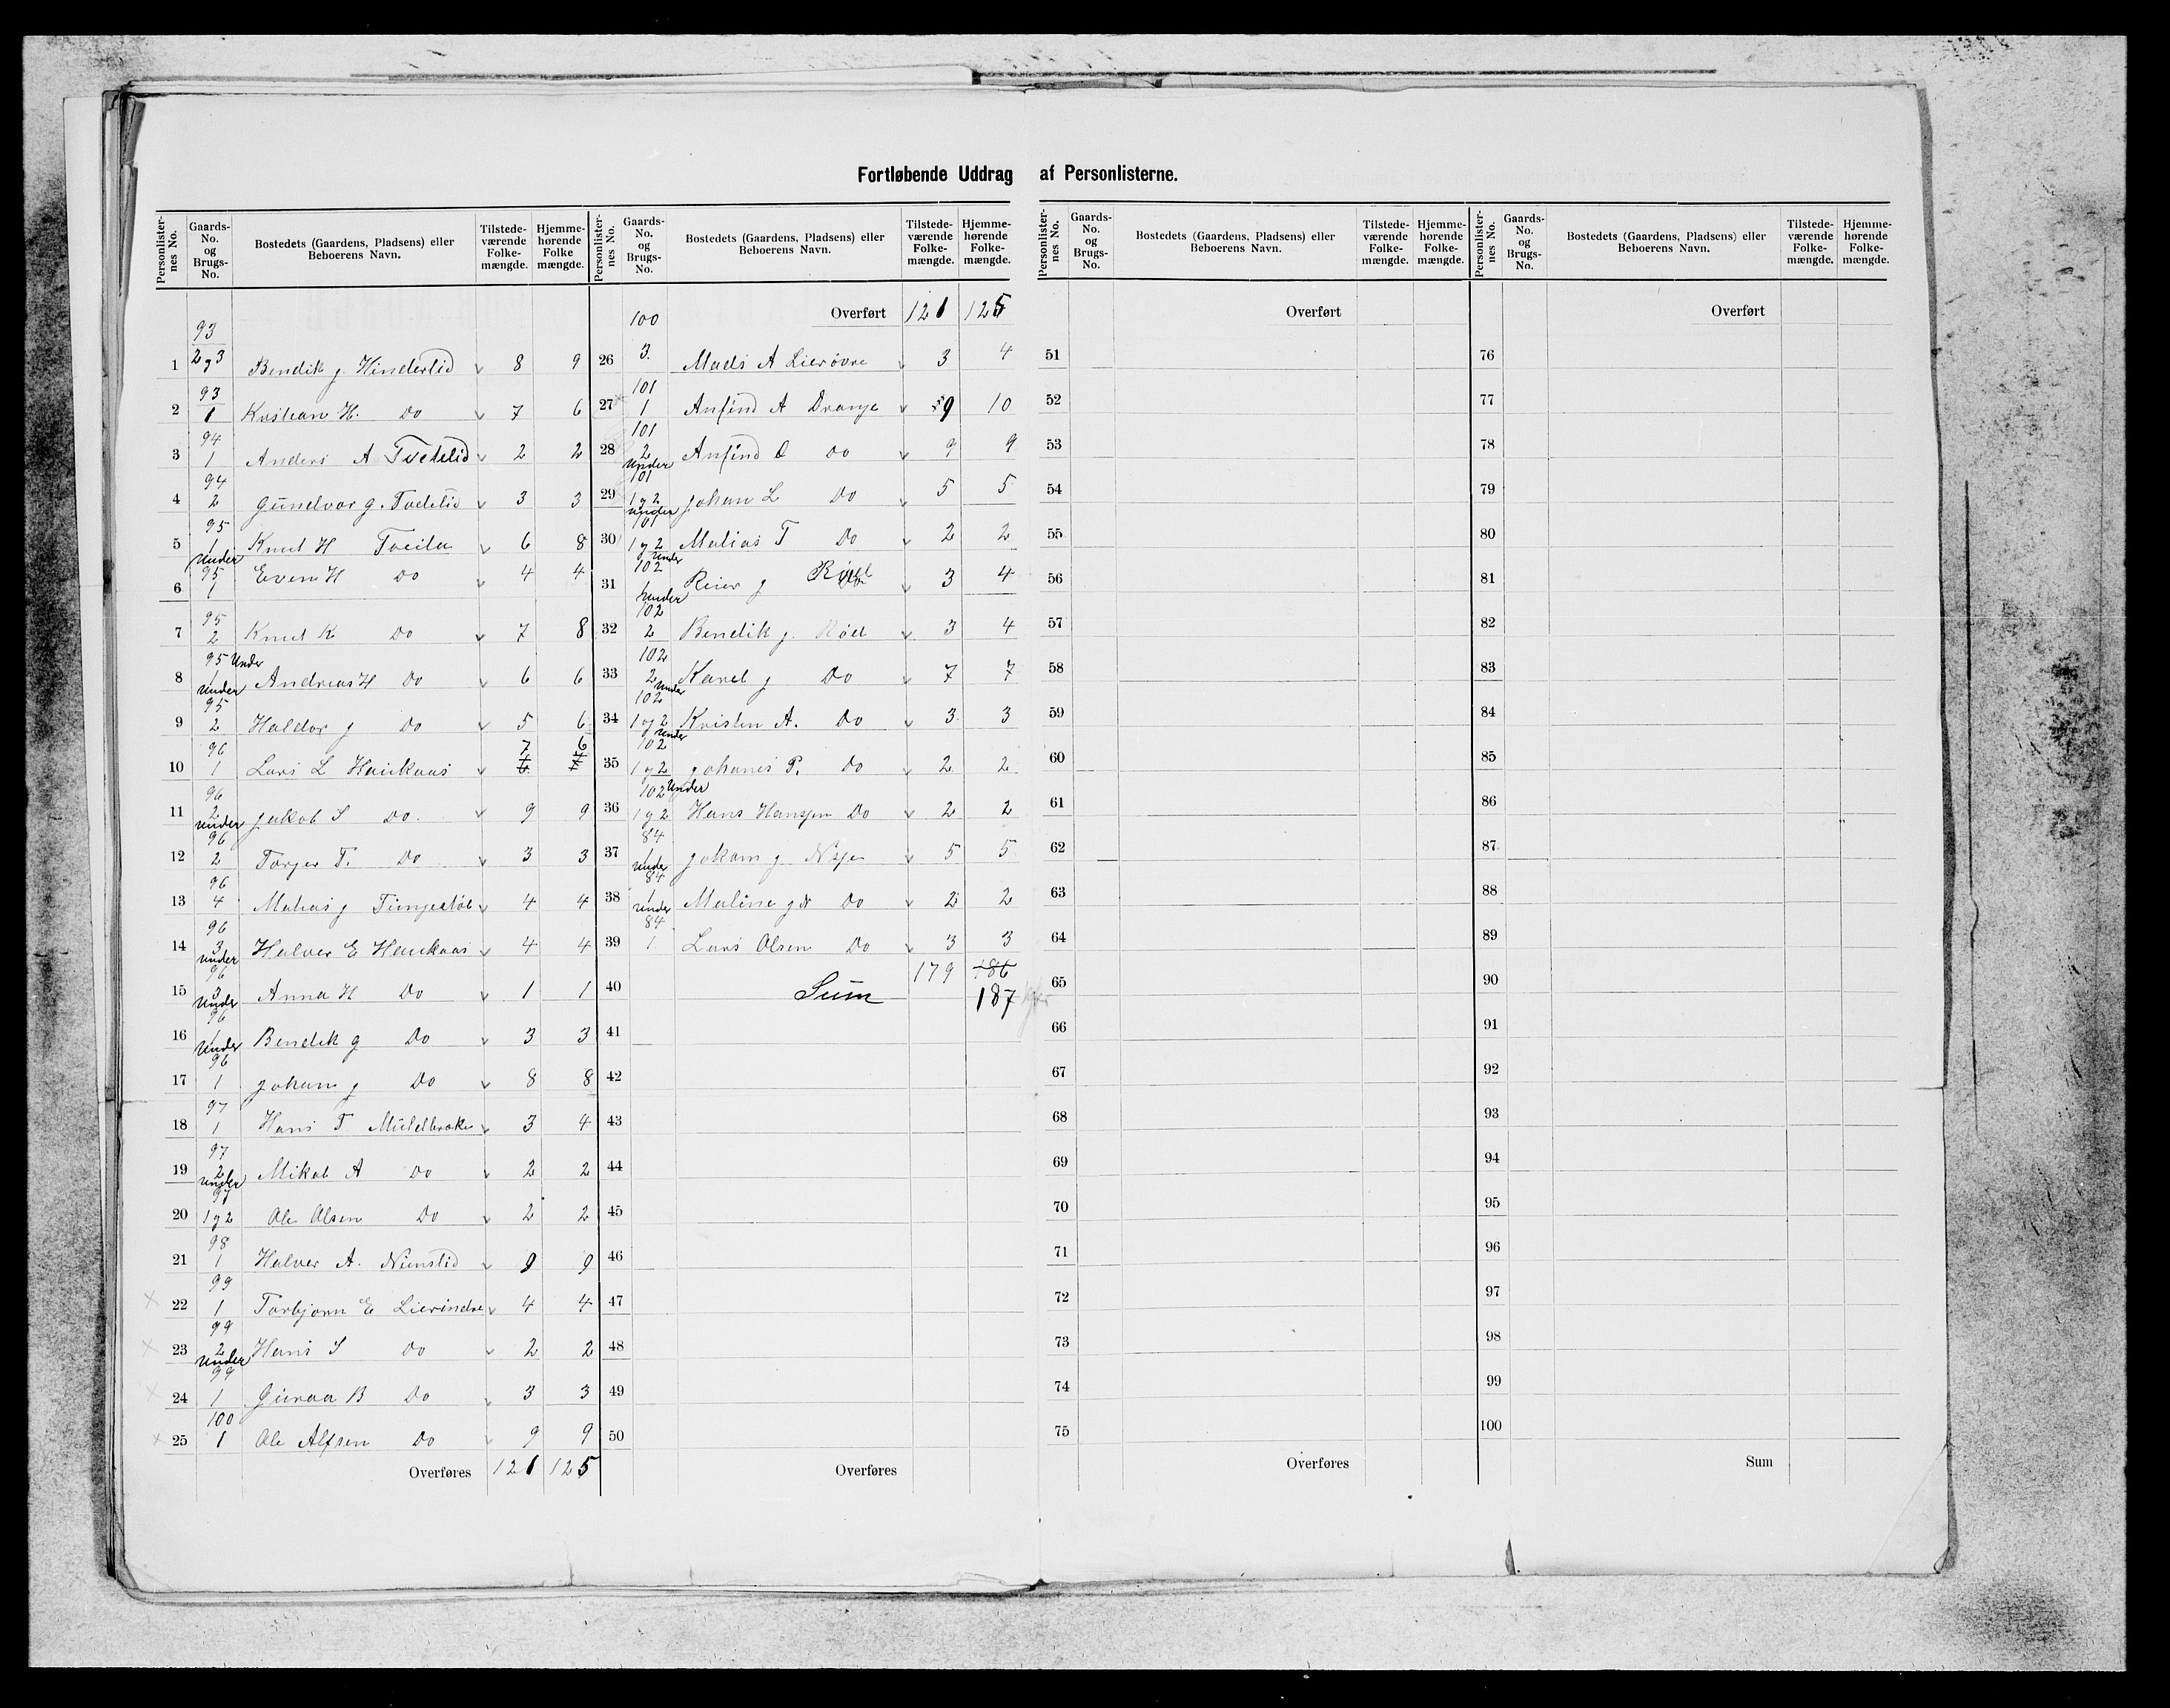 Fortløbende Uddrag af Personlisterne.
Personlister-nes No. Gaards-No. og Brugs-No. Bostedets (Gaardens, Pladsens) eller Beboerens Navn. Tilstede-værende Folke-mængde. Hjemme-hørende Folke mængde.
1 93 2 g 3 Bendik J Hinderlid v 8 9
2 93 1 Kristian H. Do v 7 6
3 94 1 Anders A Tvetelid v 2 2
4 94 2 Gundvor J. Tvetelid v 3 3
5 95 1 Knut H Tveita v 6 8
6 Under 95 1 Even H Do v 4 4
7 95 2 Knut K Do v 7 8
8 95 Under 1 Andreas H Do v 6 6
9 Under 95 2 Haldor J Do v 5 6
10 96 1 Lars L Haukaas v 7 6
11 96 2 Jakob S Do v 9 9
12 Under 96 2 Torger T. Do v 3 3
13 96 4 Matias J Tungestøl v 4 4
14 96 3 Halvor E Haukaas v 4 4
15 Under 96 3 Anna H Do v 1 1
16 Under 96 1 Bendik J Do v 3 3
17 Under 96 1 Johan J Do v 8 8
18 97 1 Hans T Mulelbrake v 3 4
19 97 2 Mikal A Do v 2 2
20 Under 97 1 g 2 Ole Olsen Do v 2 2
21 98 1 Halvor A. Nunslid v 9 9
22 99 1 Torbjørn E Lierindre v 4 4
23 99 2 Hans S Do v 2 2
24 Under 99 1 Guroa B Do v 3 3
25 100 1 Ole Alfsen Do v 9 9
Overføres 121 125
Personlister-nes No. Gaards-No. og Brugs-No. Bostedets (Gaardens, Pladsens) eller Beboerens Navn. Tilstede-værende Folke-mængde. Hjemme-hørende Folke-mængde.
Overført 121 125
26 100 3. Mads A Lierøvre v 3 4
27 101 1 Anfind A Drange v 9 10
28 101 2 Anfind O Do v 9 9
29 Under 101 1 g 2 Johan L Do v 5 5
30 Under 101 1 g 2 Matias T Do v 2 2
31 Under 102 1 Reier J Røel v 3 4
32 Under 102 2 Bendik J. Røel v 3 4
33 102 2 Karel J Do v 7 7
34 Under 102 1 g 2 Kristen A. Do v 3 3
35 Under 102 1 g 2 Johanes P. Do v 2 2
36 102 Under 1 g 2 Hans Hansen Do v 2 2
37 84 1 Johan J Nesje v 5 5
38 Under 84 1 Maline J N Do v 2 2
39 Under 84 1. Lars Olsen Do v 3 3
40 Sum 179 186
187
41
42
43
44
45
46
47
48
49
50
Overføres
Personlister-nes No. Gaards-No. og Brugs-No. Bostedets (Gaardens, Pladsens) eller Beboerens Navn. Tilstede-værende Folke-mængde. Hjemme-hørende Folke-mængde.
Overført
51
52
53
54
55
56
57
58
59
60
61
62
63
64
65
66
67
68
69
70
71
72
73
74
75
Overføres
Personlister-nes No. Gaards-No. og Brugs-No. Bostedets (Gaardens, Pladsens) eller Beboerens Navn. Tilstede-værende Folke-mængde. Hjemme-hørende Folke-mængde.
Overført
76
77
78
79
80
81
82
83
84
85
86
87
88
89
90
91
92
93
94
95
96
97
98
99
100
Sum